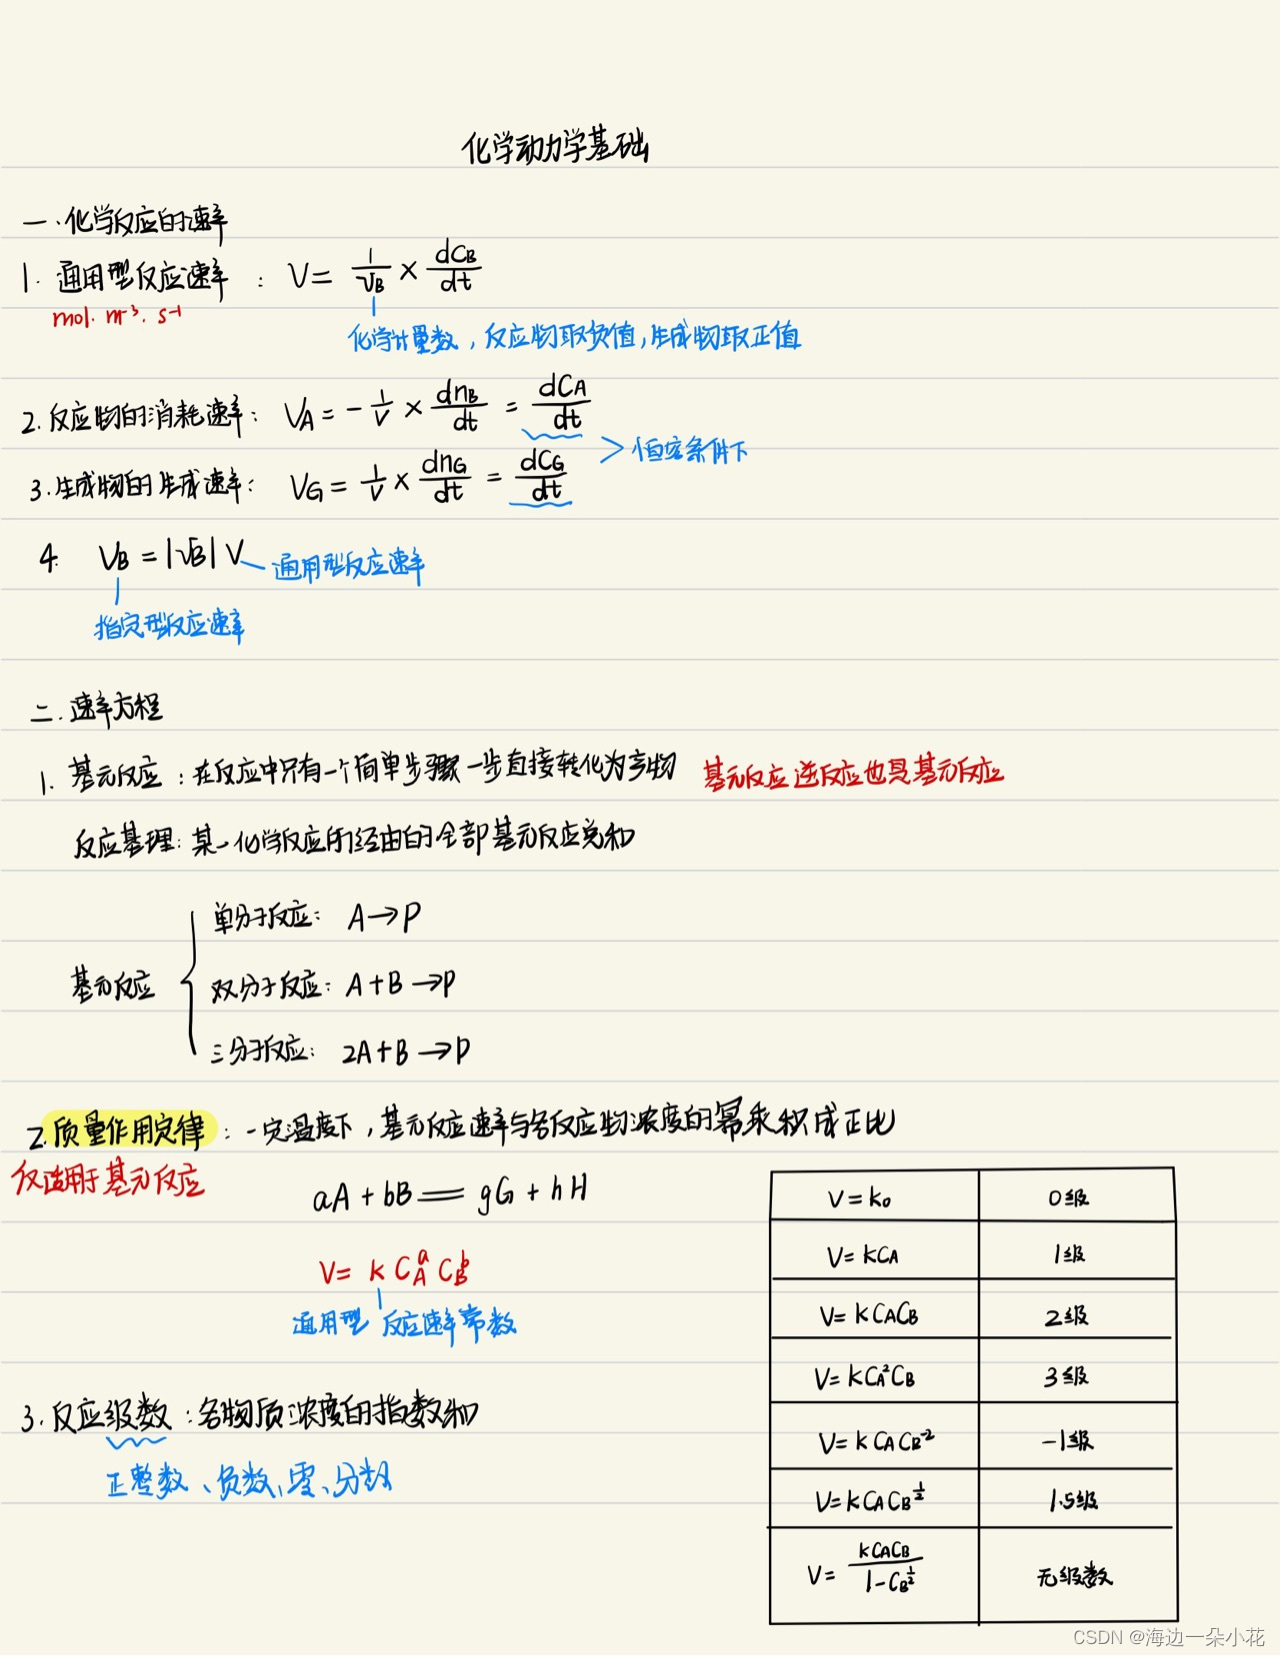 化学动力学基础
一.化学反应的速率
1. 通用型反应速率 : V= 1/νB × dCB/dt
mol. m⁻³. s⁻¹
化学计量数,反应物取负值,生成物取正值
2.反应物的消耗速率: VA = - 1/V × dnB/dt = dCA/dt
3.生成物的生成速率: VG = 1/V × dnG/dt = dCG/dt
>恒容条件下
4. VB = |νB| V 通用型反应速率
指定型反应速率
二.速率方程
1. 基元反应:在反应中只有一个简单步骤一步直接转化为产物 基元反应逆反应也是基元反应
反应基理:某一化学反应所经由的全部基元反应总和
单分子反应: A→P
基元反应 { 双分子反应: A+B→P
三分子反应: 2A+B→P
2.质量作用定律:一定温度下,基元反应速率与各反应物浓度的幂乘积成正比
仅适用于基元反应
aA + bB = gG + hH
V= k CAᵃ CBᵇ
通用型 反应速率常数
3.反应级数:各物质浓度的指数和
正整数、负数、零、分数
V=k₀ 0级
V=kCA 1级
V=kCACB 2级
V=kCA²CB 3级
V=kCACB⁻² -1级
V=kCACB^1/2 1.5级
V= kCACB/1-CB^1/2 无级数
CSDN @海边一朵小花